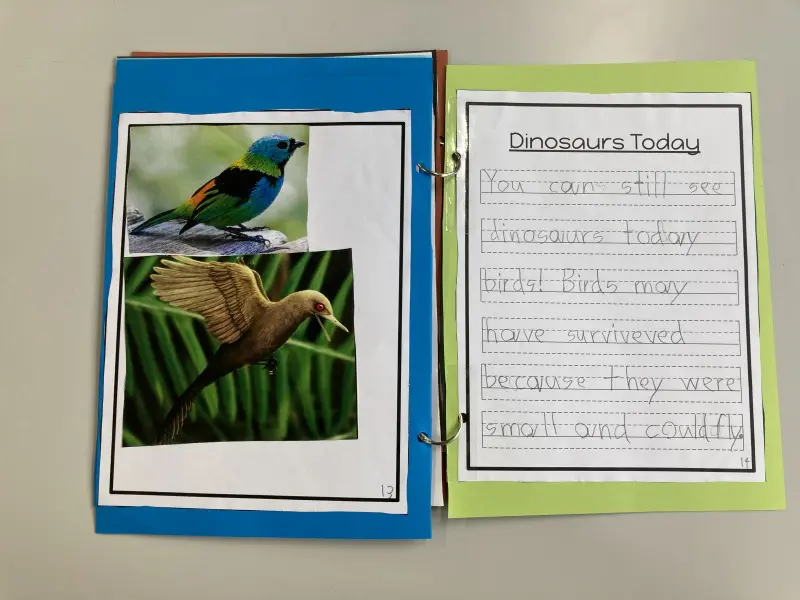 13
Dinosaurs Today
You can still see
dinosaurs today
birds! Birds may
have surviveved
because they were
small and couldfly.
14